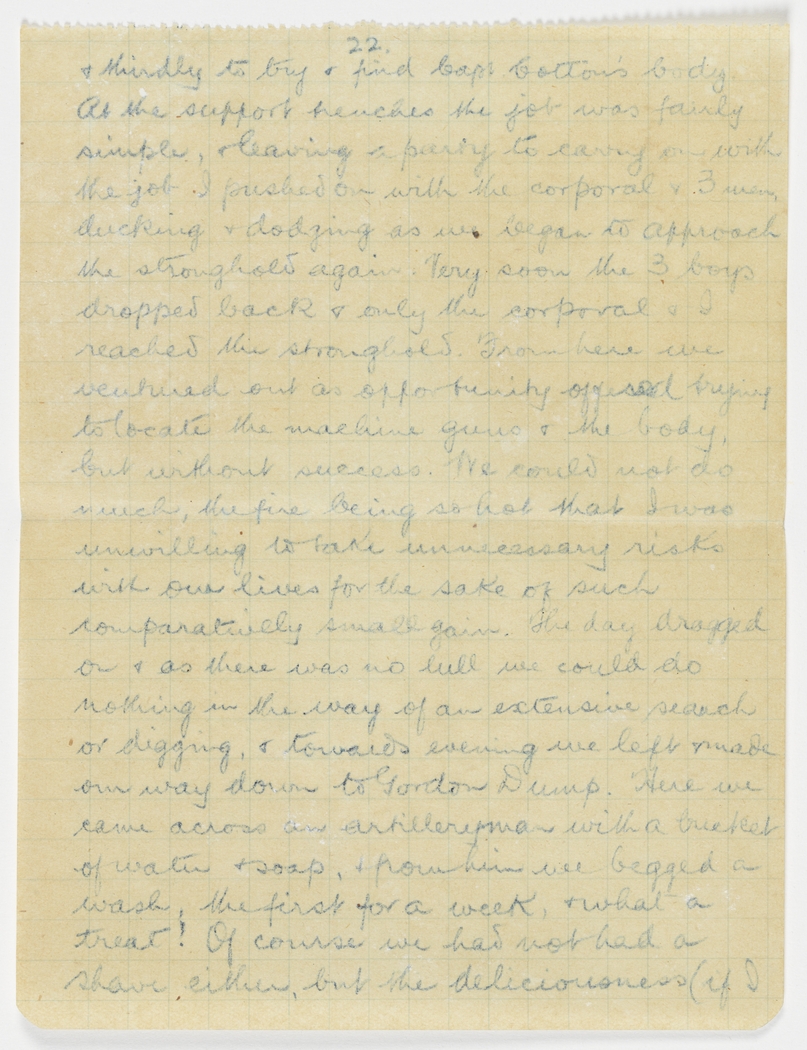 22.
& thirdly to try & find Capt Cotton's body.
At the support trenches the job was fairly
simple, & leaving a party to carry on with
the job I pushed on with the corporal & 3 men,
ducking & dodging as we began to approach
the stronghold again. Very soon the 3 boys
dropped back & only the corporal & I
reached the stronghold. From here we
ventured out as opportunity offered trying
to locate the machine guns & the body,
but without success. We could not do
much, the fire being so hot that I was
unwilling to take unnecessary risks
with our lives for the sake of such
comparatively small gain. The day dragged
on & as there was no lull we could do
nothing in the way of an extensive search
or digging, & towards evening we left & made
our way down to Gordon Dump. Here we
came across an artilleryman with a bucket
of water & soap, & from him we begged a
wash, the first for a week, & what a
treat! Of course we had not had a
shave either, but the deliciousness (if I